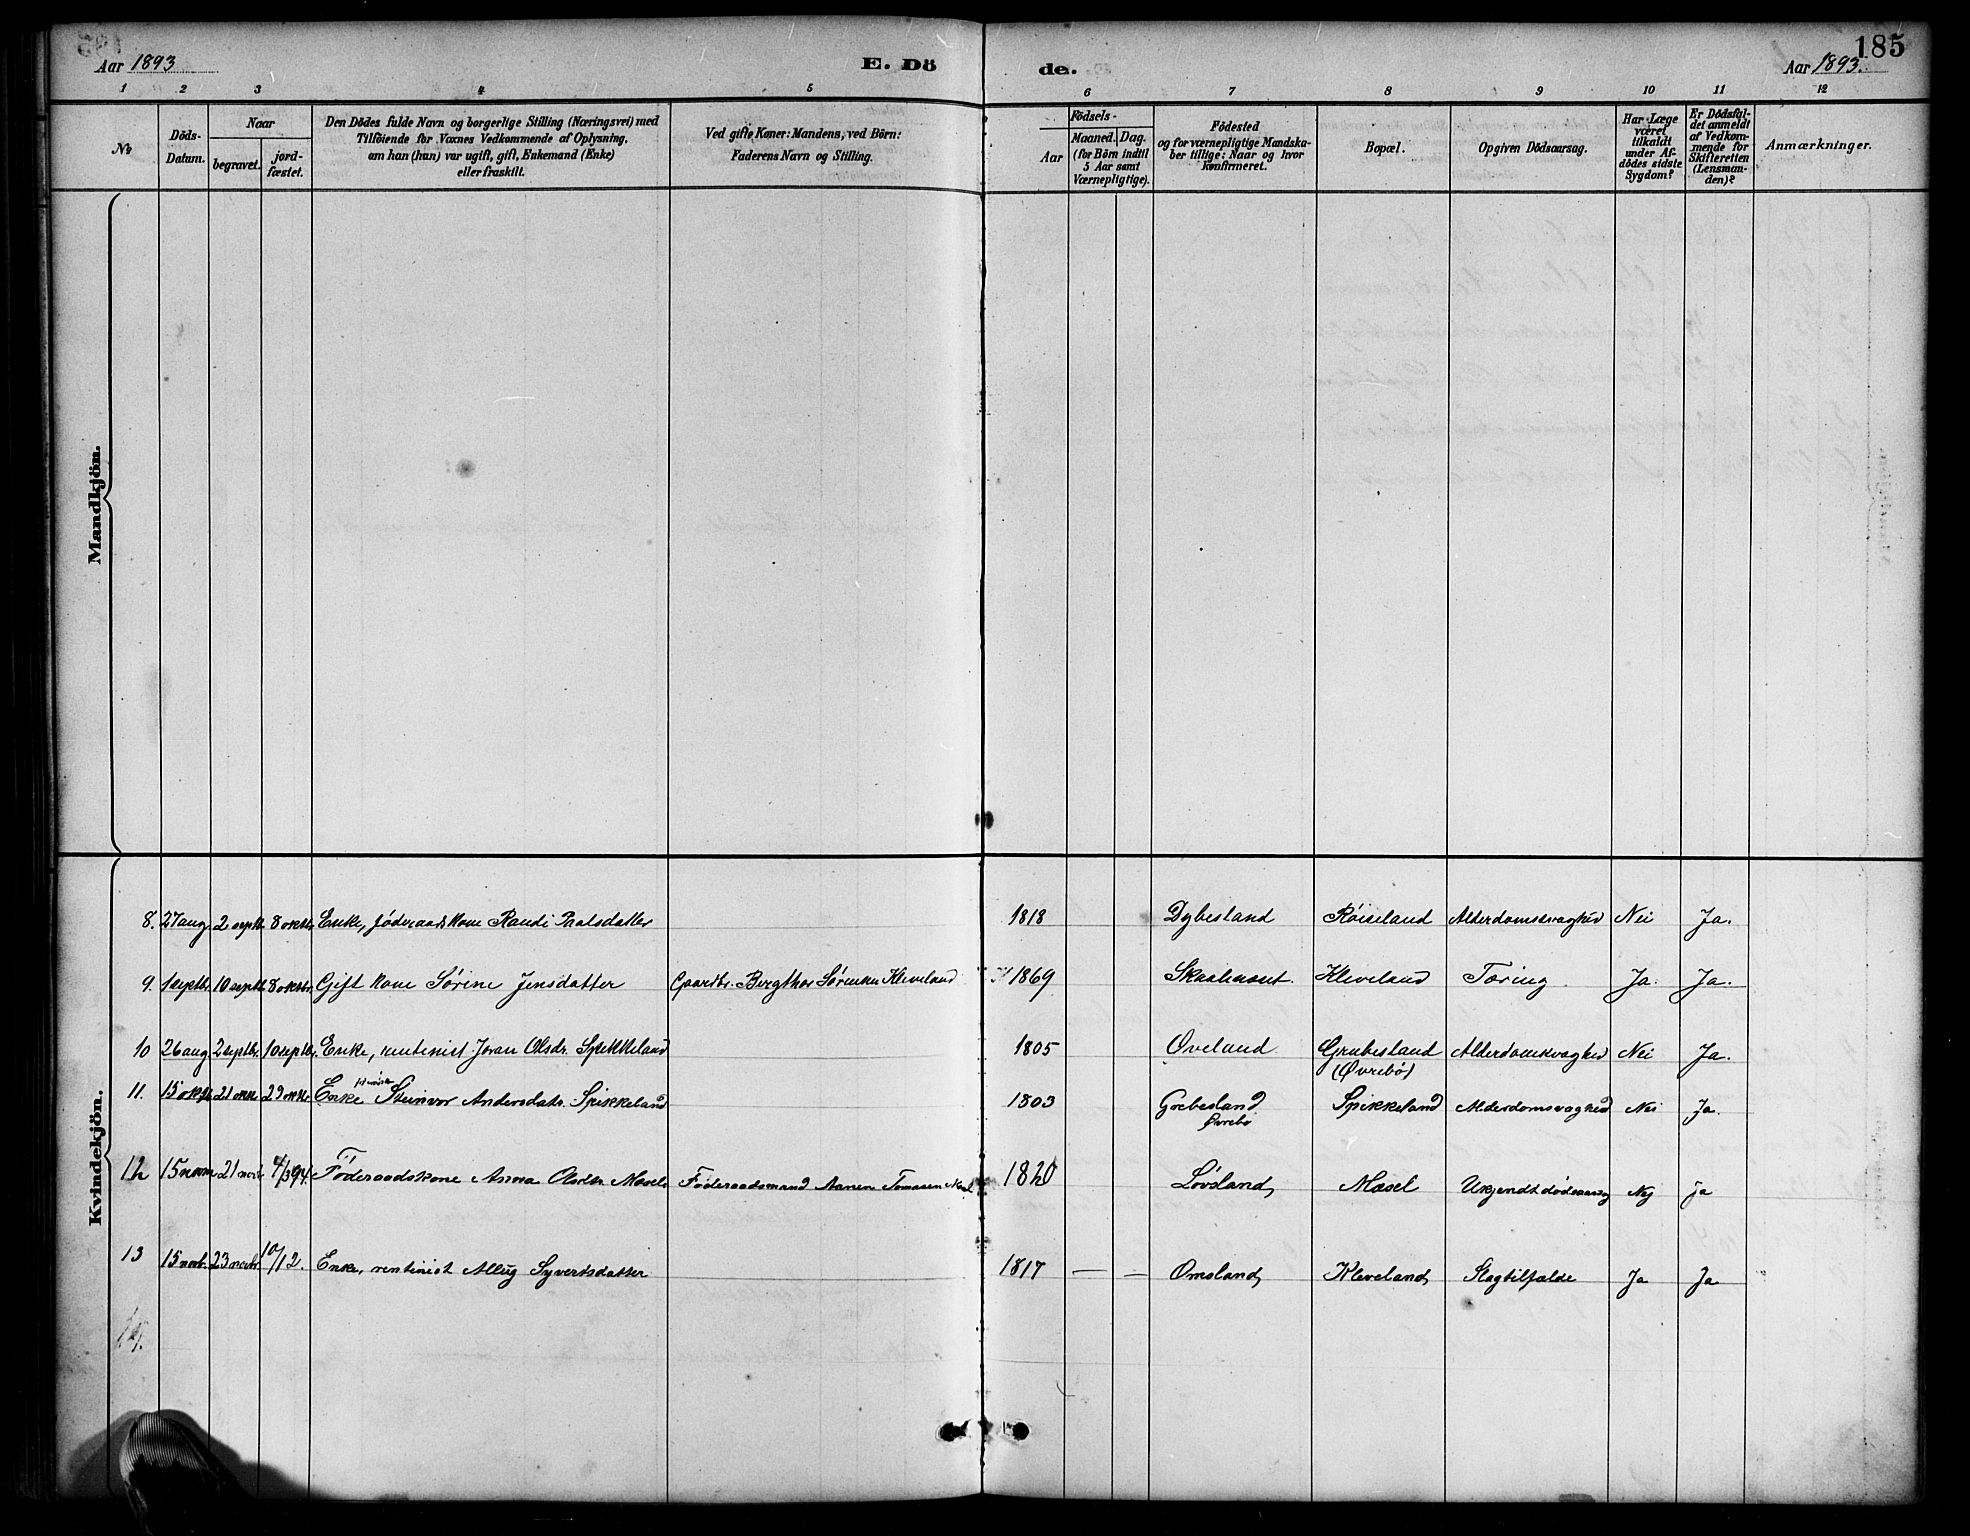 185
Aar 1893
E. Dö
de.
Aar 1893.
1 2 3 4 5 6 7 8 9 10 11 12
No
Döds-
Datum.
Naar
begravet.
jord-
fæstet.
Den Dödes fulde Navn og borgerlige Stilling (Næringsvei) med
Tilföiende for Voxnes Vedkommende af Oplysning,
om han (hun) var ugift, gift, Enkemand (Enke)
eller fraskilt.
Ved gifte Koner: Mandens, ved Börn:
Faderens Navn og Stilling.
Födsels-
Aar
Maaned. Dag.
(for Börn indtil
5 Aar samt
Værnepligtige).
Födested
og for værnepligtige Mandska-
ber tillige: Naar og hvor
konfirmeret.
Bopæl.
Opgiven Dödsaarsag.
Har Læge
været
tilkaldt
under Af-
dödes sidste
Sygdom?
Er Dödsfal-
det anmeldt
af Vedkom-
mende for
Skifteretten
(Lensman-
den)?
Anmærkninger.
Mandkjön.
Kvindekjön.
8. 27 aug 2 septb. 8 oktbr. Enke, føderaadskone Randi Paalsdatter 1818 Dybesland Røiseland Alderdomssvaghed Nei Ja.
9. 1 septbr. 10 septb. 8 oktbr. Gift kone Sørine Jensdatter Gaardbr. Bergthor Sørensen Kleveland 1869 Kleveland Tæring. Ja. Ja.
10 26 aug 2 septbr. 10 septbr. Enke, rentenist Joran Olsdr. Spikkeland 1805 Øveland Grubesland Alderdomssvaghed Nei Ja.
(Øvrebø)
11. 15 oktb. 21 oktb. 29 oktbr. Enke Steinvor Andersdatr. Spikkeland 1803 Grebesland Spikkeland Alderdomsvaghed Nei Ja.
Øvrebø
12 15 novm 21 novb 4/3 94. Føderaadskone Anna Olsdtr. Mæsel Føderaadsmand Aanen Tomasen Mæsel 1820 Løvsland Mæsel Ukjendt dødsaarsag Nej ja
13 15 novb. 23 novbr. 10/12. Enke, rentinist Allug Syvertsdatter 1817 — — Omsland Kleveland Slagtilfælde Ja Ja
14.